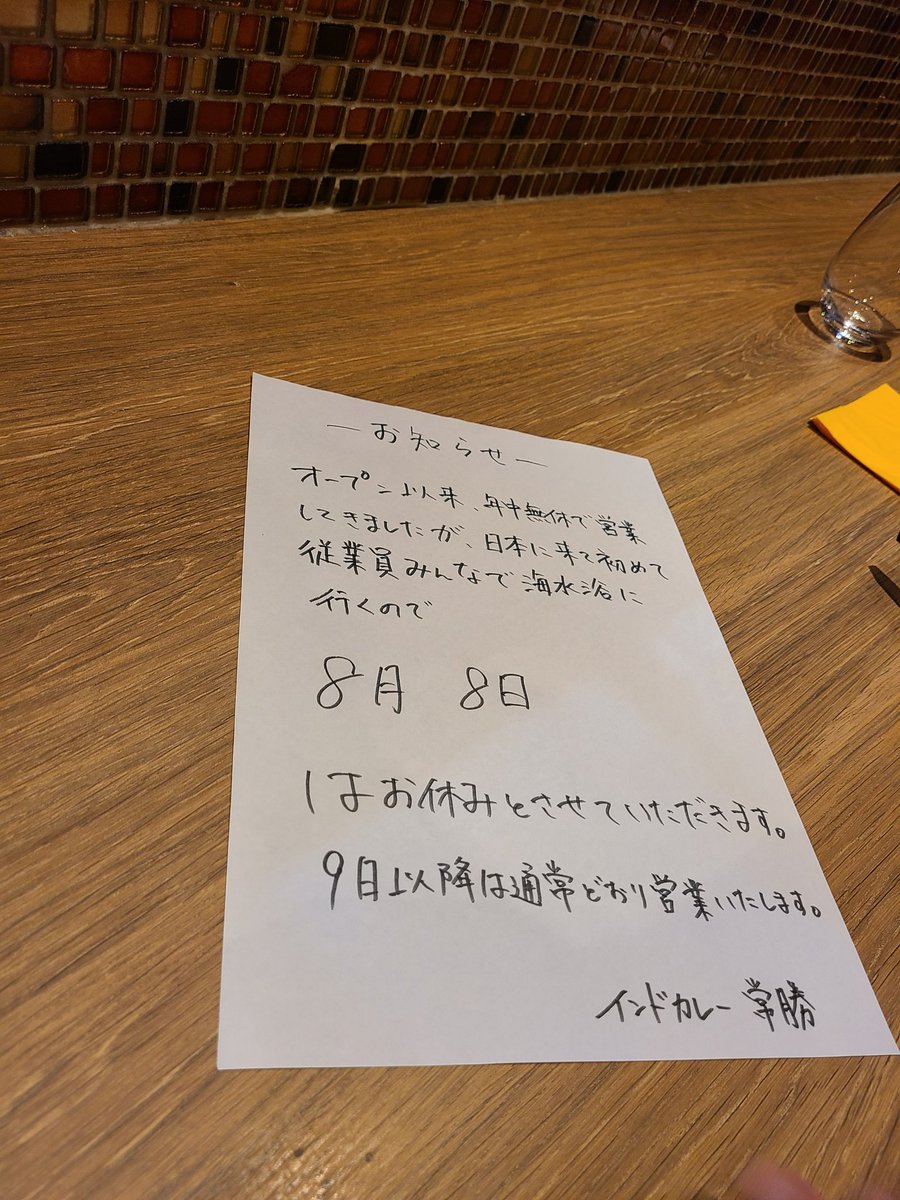 ーお知らせー
オープン以来、年中無休で営業
してきましたが、日本に来て初めて
従業員みんなで海水浴に
行くので
8月 8日
はお休みとさせていただきます。
9日以降は通常どおり営業いたします。
インドカレー 常勝